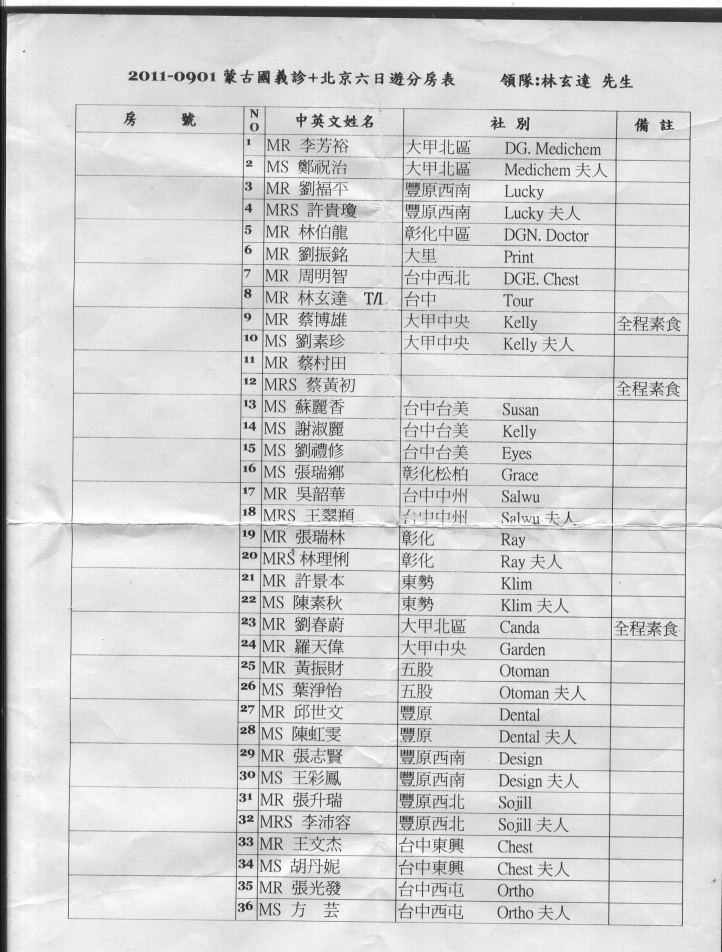 2011-0901 蒙古國義診+北京六日遊分房表 領隊:林玄達 先生
房 號 NO 中英文姓名 社 別 備 註
1 MR 李芳裕 大甲北區 DG. Medichem
2 MS 鄭祝治 大甲北區 Medichem 夫人
3 MR 劉福平 豐原西南 Lucky
4 MRS 許貴瓊 豐原西南 Lucky 夫人
5 MR 林伯龍 彰化中區 DGN. Doctor
6 MR 劉振銘 大里 Print
7 MR 周明智 台中西北 DGE. Chest
8 MR 林玄達 T/L 台中 Tour
9 MR 蔡博雄 大甲中央 Kelly 全程素食
10 MS 劉素珍 大甲中央 Kelly 夫人
11 MR 蔡村田
12 MRS 蔡黃初 全程素食
13 MS 蘇麗香 台中台美 Susan
14 MS 謝淑麗 台中台美 Kelly
15 MS 劉禮修 台中台美 Eyes
16 MS 張瑞鄉 彰化松柏 Grace
17 MR 吳韶華 台中中州 Salwu
18 MRS 王翠 台中中州 Salwu 夫人
19 MR 張瑞林 彰化 Ray
20 MRS 林理悧 彰化 Ray 夫人
21 MR 許景本 東勢 Klim
22 MS 陳素秋 東勢 Klim 夫人
23 MR 劉春蔚 大甲北區 Canda 全程素食
24 MR 羅天偉 大甲中央 Garden
25 MR 黃振財 五股 Otoman
26 MS 葉淨怡 五股 Otoman 夫人
27 MR 邱世文 豐原 Dental
28 MS 陳虹雯 豐原 Dental 夫人
29 MR 張志賢 豐原西南 Design
30 MS 王彩鳳 豐原西南 Design 夫人
31 MR 張升瑞 豐原西北 Sojill
32 MRS 李沛容 豐原西北 Sojill 夫人
33 MR 王文杰 台中東興 Chest
34 MS 胡丹妮 台中東興 Chest 夫人
35 MR 張光發 台中西屯 Ortho
36 MS 方 芸 台中西屯 Ortho 夫人